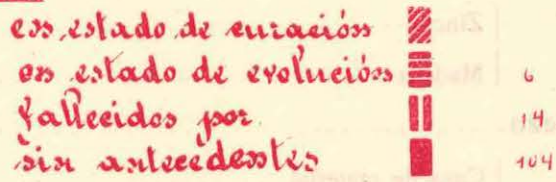 en estado de curación
en estado de evolución 6
fallecidos por 14
sin antecedentes 104